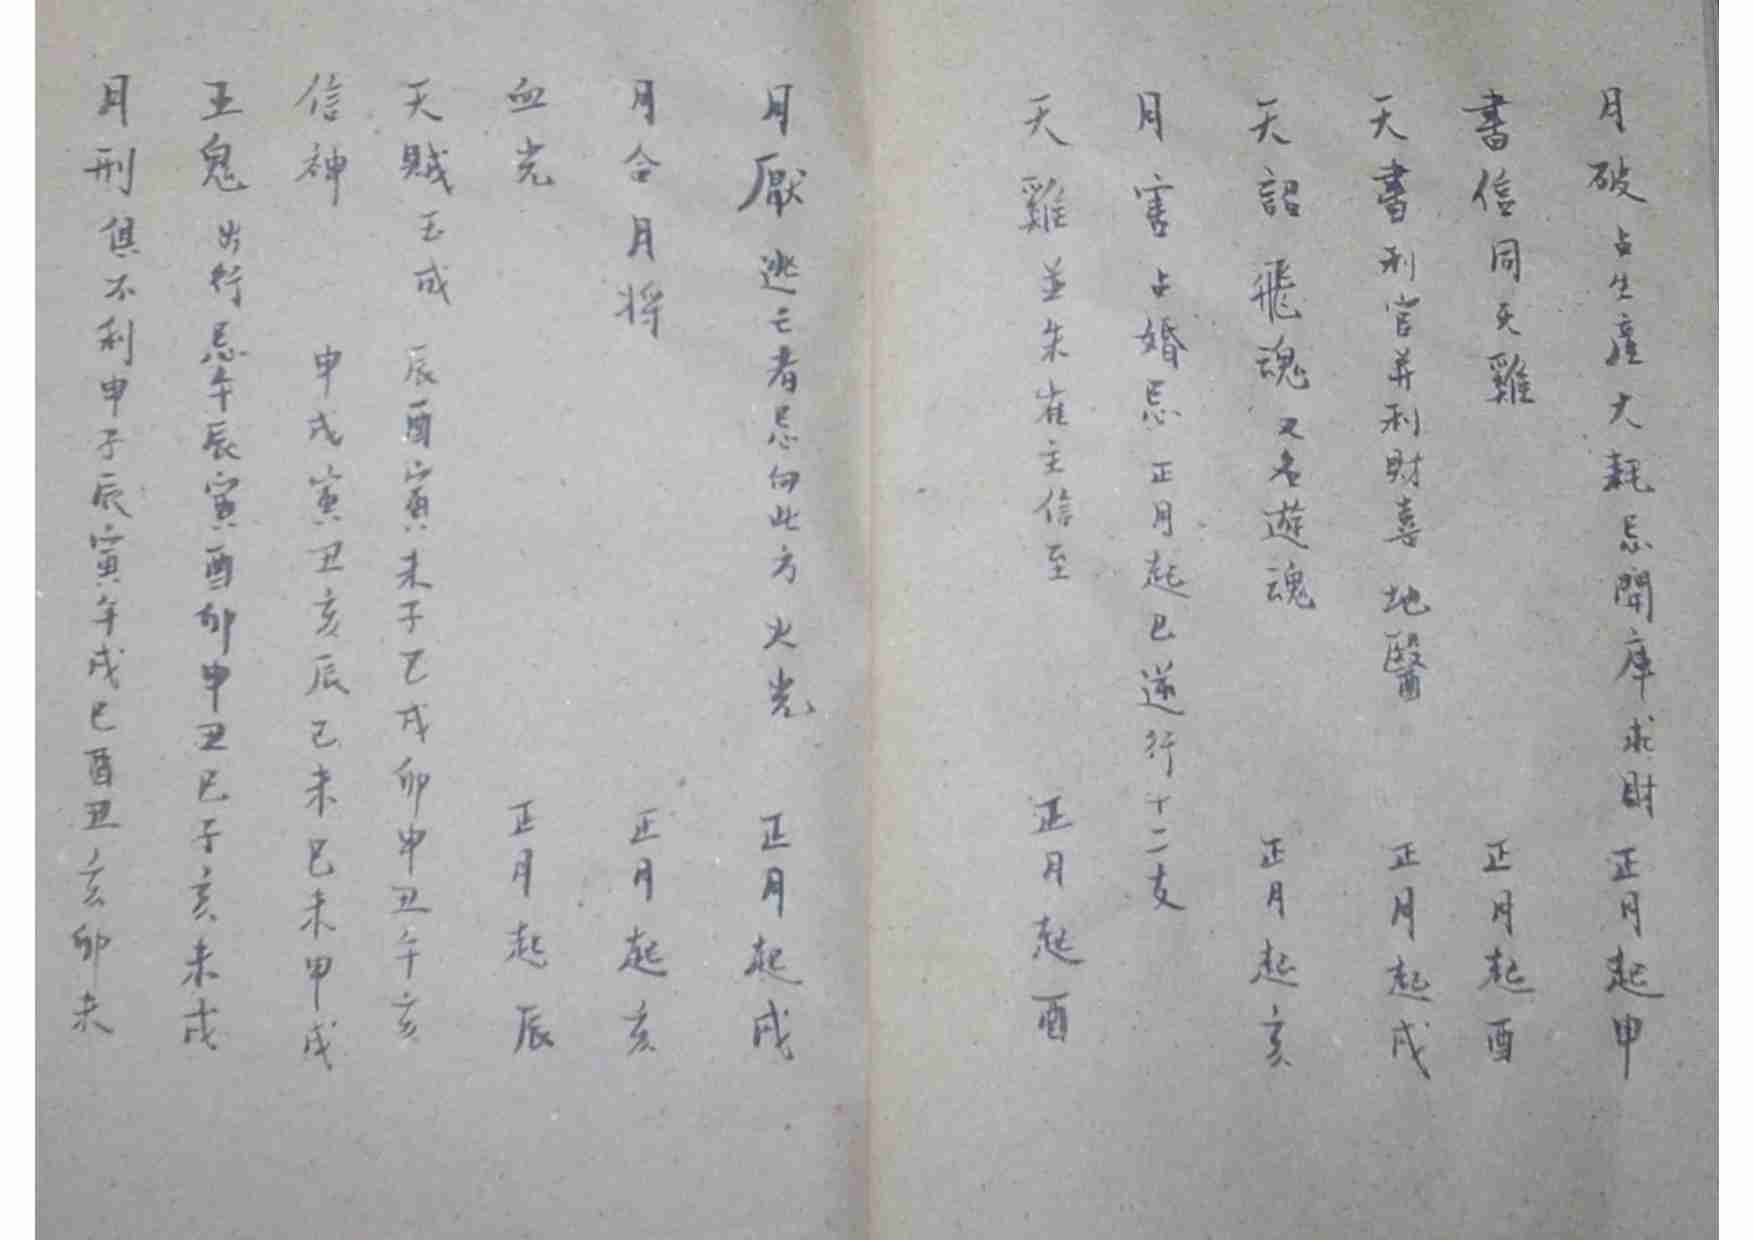 月破占生產大耗忌開庫求財正月起申
書信同天雞正月起酉
天書利官并利財喜地醫正月起戌
天詔飛魂又名遊魂正月起亥
月害占婚忌正月起巳逆行十二支
天雞並朱雀主信至正月起酉
月厭逃亡者忌向此方火光正月起戌
月合月将正月起亥
血光正月起辰
天賊玉成辰酉寅未子乙戌卯申丑午亥
信神申戌寅丑亥辰己未巳未甲戌
王鬼出行忌午辰寅酉卯申丑巳子亥未戌
月刑俱不利申子辰寅午戌巳酉丑亥卯未